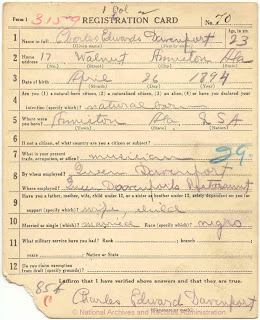 1 Gol
Form 1 3159 REGISTRATION CARD No. 70
1 Name in full Charles Edward Davenport 23
(Given name) (Family name) Age, in yrs.
2 Home address 17 Walnut Anniston Ala
(No.) (Street) (City) (State)
3 Date of birth April 26 1894
(Month) (Day) (Year)
4 Are you (1) a natural-born citizen, (2) a naturalized citizen, (3) an alien, (4) or have you declared your
intention (specify which)? natural born
5 Where were you born? Anniston Ala USA
(Town) (State) (Nation)
6 If not a citizen, of what country are you a citizen or subject?
7 What is your present trade, occupation, or office? musician 29.
8 By whom employed? Queen Davenport
Where employed? Queen Davenports Restaurant
9 Have you a father, mother, wife, child under 12, or a sister or brother under 12, solely dependent on you for
support (specify which)? wife, child
10 Married or single (which)? married Race (specify which)? negro
11 What military service have you had? Rank ; branch
years ; Nation or State
12 Do you claim exemption
from draft (specify grounds)?
I affirm that I have verified above answers and that they are true.
Charles Edward Davenport
© National Archives and Records Administration